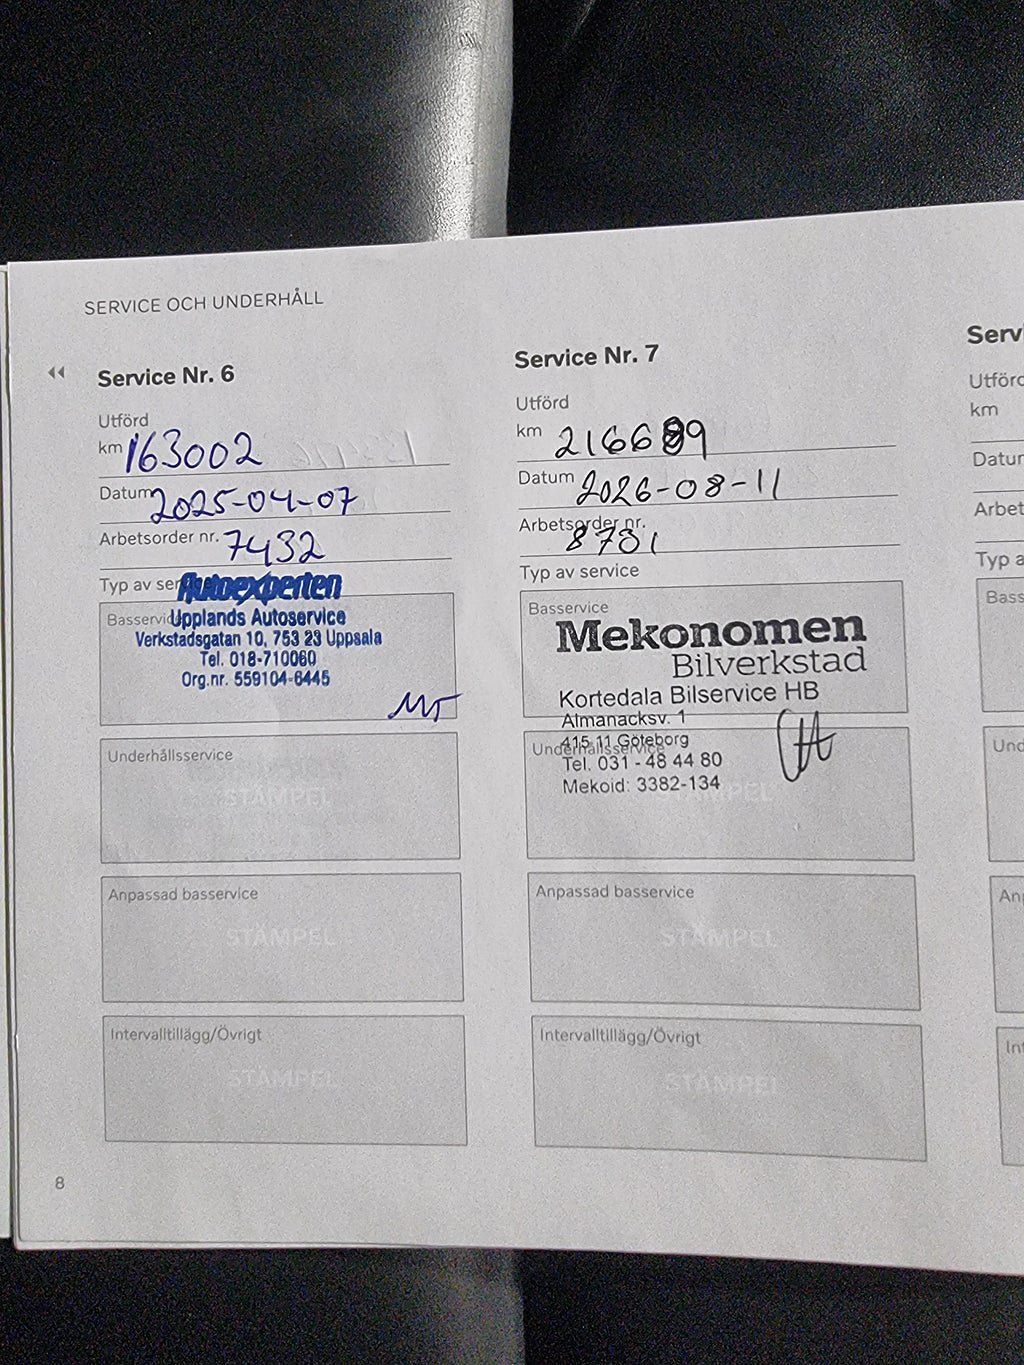 SERVICE OCH UNDERHÅLL
Service Nr. 6
Utförd
km 163002
Datum 2025-04-07
Arbetsorder nr. 7432
Typ av ser
Autoexperten
Basservic
Upplands Autoservice
Verkstadsgatan 10, 753 23 Uppsala
Tel. 018-710060
Org.nr. 559104-6445
Underhållsservice
STÄMPEL
Anpassad basservice
STÄMPEL
Intervalltillägg/Övrigt
STÄMPEL
8
Service Nr. 7
Utförd
km
Datum 2026-08-11
Arbetsorder nr.
Typ av service
Basservice
Mekonomen
Bilverkstad
Kortedala Bilservice HB
Almanacksv. 1
415 11 Göteborg
Underhållsservice
Tel. 031 - 48 44 80
Mekoid: 3382-134
STÄMPEL
Anpassad basservice
STÄMPEL
Intervalltillägg/Övrigt
STÄMPEL
Serv
Utförd
km
Datum
Arbet
Typ a
Bass
Und
An
Int